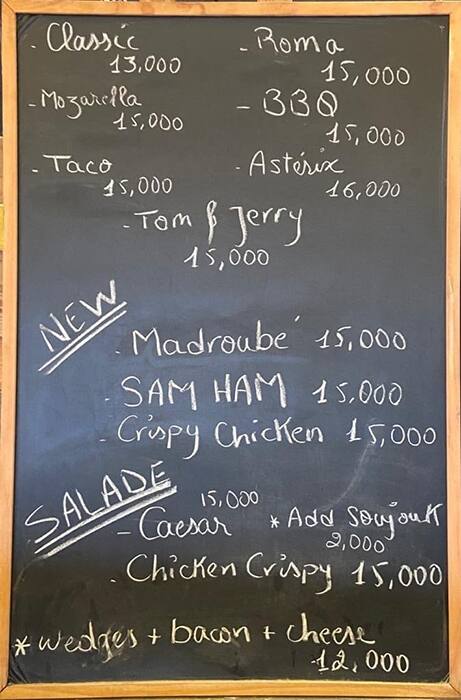 - Classic - Roma
13,000 15,000
- Mozarella - BBQ
15,000 15,000
- Taco - Astérix
15,000 16,000
- Tom & Jerry
15,000
NEW
- Madroubé 15,000
- SAM HAM 15,000
- Crispy Chicken 15,000
SALADE
15,000
- Caesar * Add Soujouk
2,000
- Chicken Crispy 15,000
* wedges + bacon + cheese
12,000